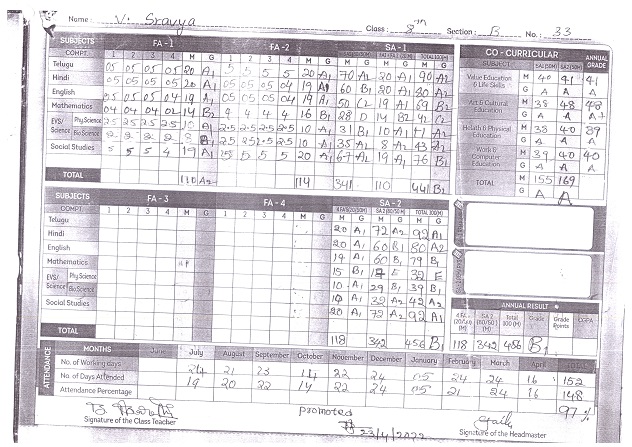 Name : V. Sravya Class : 8th Section : B No. : 33
SUBJECTS FA - 1 FA - 2 SA - 1
COMPT. 1 2 3 4 M G 1 2 3 4 M G
Telugu 05 05 05 05 20 A1 5 5 5 5 20 A1 70 A2 20 A1 90 A2
Hindi 05 05 05 05 20 A1 05 05 05 04 19 A1 60 B1 20 A1 80 A2
English 05 05 05 04 19 A1 05 05 05 04 19 A1 50 C2 19 A1 69 B2
Mathematics 04 04 04 02 14 B2 4 4 4 4 16 B1 28 D 14 B2 42 C2
EVS/ Science Phy Science 2.5 2.5 2.5 2.5 10 A1 2.5 2.5 2.5 2.5 10 A1 31 B1 10 A1 41 A2
Bio Science 2 2 2 2 8 2.5 2.5 2.5 2.5 10 A1 35 A2 8 A2 43 A2
Social Studies 5 5 5 4 19 A1 5 5 5 5 20 A1 67 A2 19 A1 76 B1
TOTAL 110 A2 114 341 110 441 B2
CO - CURRICULAR
SUBJECT ANNUAL GRADE
Value Education & Life Skills M 40 41 41
G A A A
Art & Cultural Education M 38 48 48
G A A A
Health & Physical Education M 38 40 39
G A A A
Work & Computer Education M 39 40 40
G A A A
TOTAL M 155 169
G A A
SUBJECTS FA - 3 FA - 4 SA - 2
COMPT. 1 2 3 4 M G 1 2 3 4 M G
Telugu 20 A1 72 A2 92 A1
Hindi 20 A1 60 B1 80 A2
English 19 A1 60 B1 79 B1
Mathematics 15 B1 17 E 32 E
EVS/ Science Phy Science 10 A1 29 B1 39 B1
Bio Science 10 A1 32 A2 42 A2
Social Studies 20 A1 72 A2 92 A1
TOTAL 118 342 456 B1
ANNUAL RESULT
SA 2 (80/50) (M) Total 100 (M) Grade Grade Points CGPA
118 342 456 B1
ATTENDANCE
MONTHS June July August September October November December January February March April TOTAL
No. of Working days 24 21 23 14 22 24 05 24 24 16 152
No. of Days Attended 19 20 22 14 22 24 05 21 24 16 148
Attendance Percentage 97 %
promoted
23/4/2022
Signature of the Class Teacher
Signature of the Headmaster